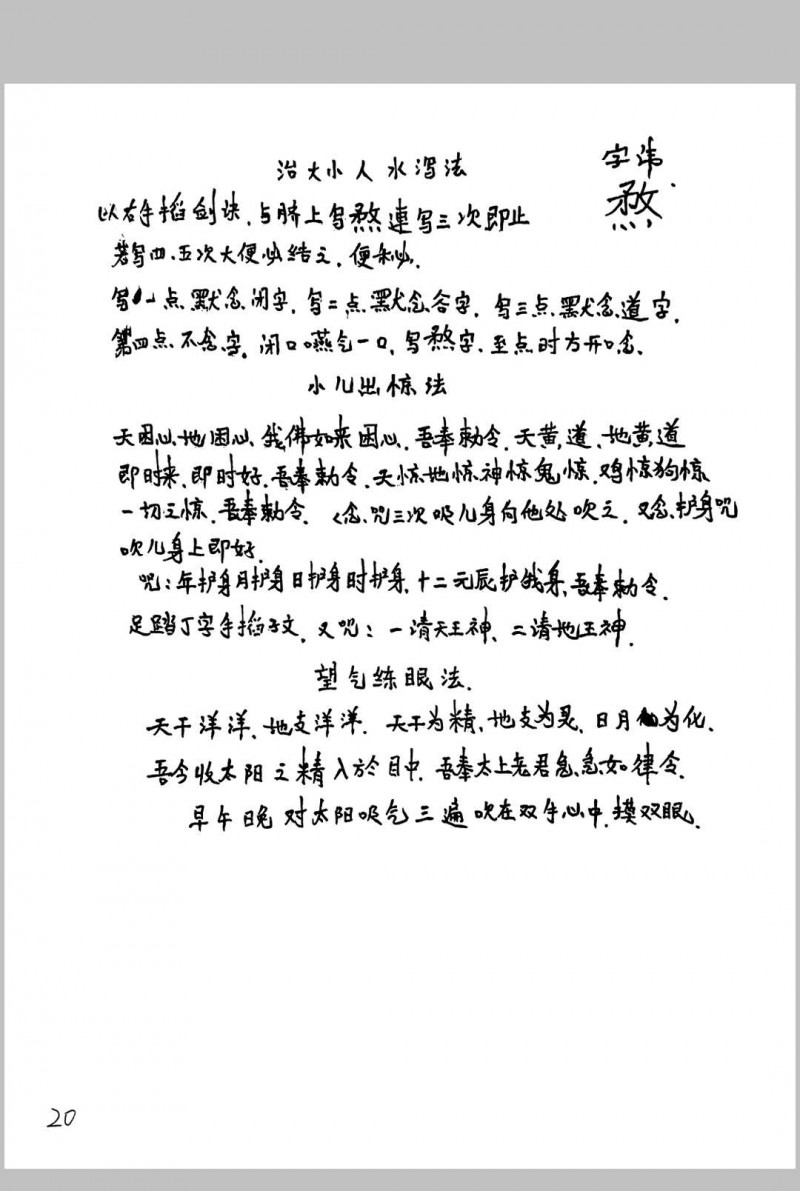 治大小人水泻法
字讳
𤎅
以右手搯剑诀,与脐上写𤎅連写三次即止
若写四、五次大便必结之,便秘.
写一点默念闭字,写二点默念谷字,写三点默念道字,
第四点不念字,闭口嚥气一口,写𤎅字,至点时方开口念.
小儿出惊法
天困心地困心、我佛如来困心,吾奉勅令,天黄道、地黄道
即时来,即时好,吾奉勅令,天惊地惊神惊鬼惊,鸡惊狗惊
一切之惊,吾奉勅令. 念咒三次吸儿身向他处吹之,又念护身咒
吹儿身上即好.
咒:年护身月护身日护身时护身,十二元辰护我身,吾奉勅令.
足踏丁字手搯子文,又咒:一请天王神、二请地王神.
望气练眼法.
天干洋洋,地支洋洋,天干为精,地支为灵,日月为化,
吾今收太阳之精入於目中,吾奉太上老君急急如律令.
早午晚对太阳吸气三遍吹在双手心中,摸双眼.
20